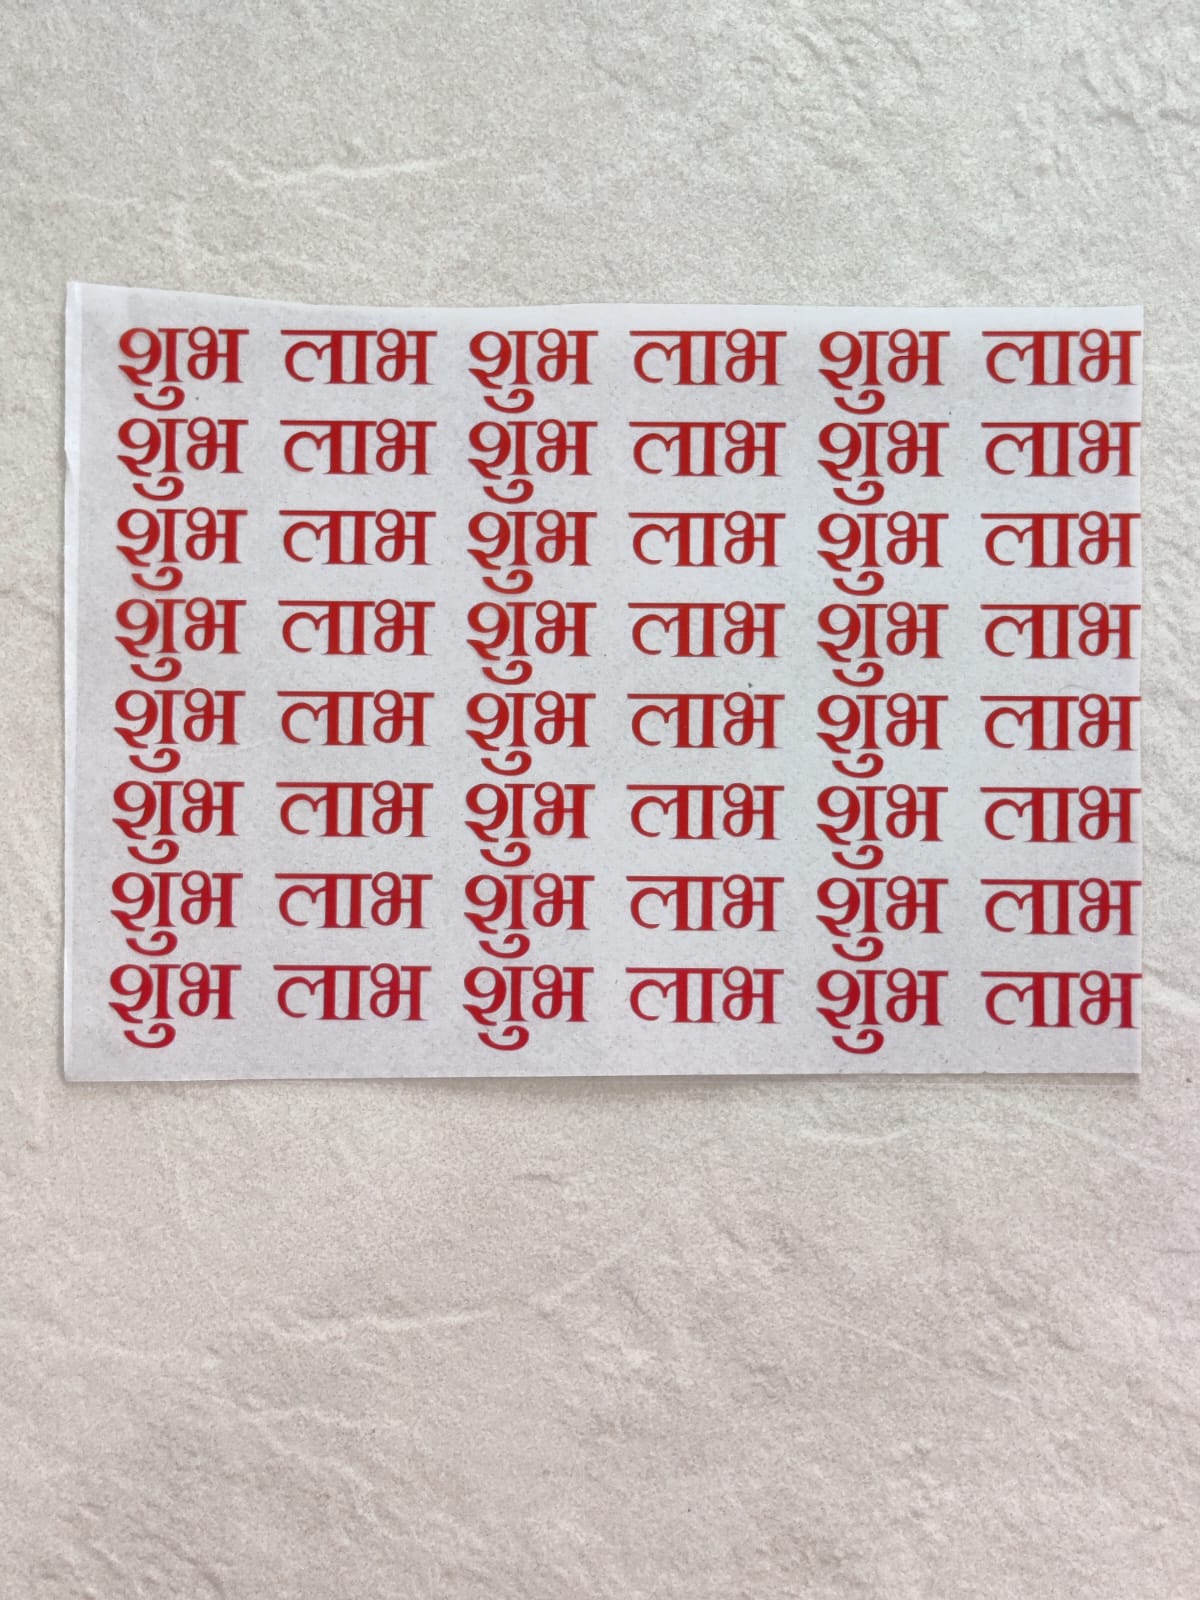 शुभ लाभ शुभ लाभ शुभ लाभ
शुभ लाभ शुभ लाभ शुभ लाभ
शुभ लाभ शुभ लाभ शुभ लाभ
शुभ लाभ शुभ लाभ शुभ लाभ
शुभ लाभ शुभ लाभ शुभ लाभ
शुभ लाभ शुभ लाभ शुभ लाभ
शुभ लाभ शुभ लाभ शुभ लाभ
शुभ लाभ शुभ लाभ शुभ लाभ